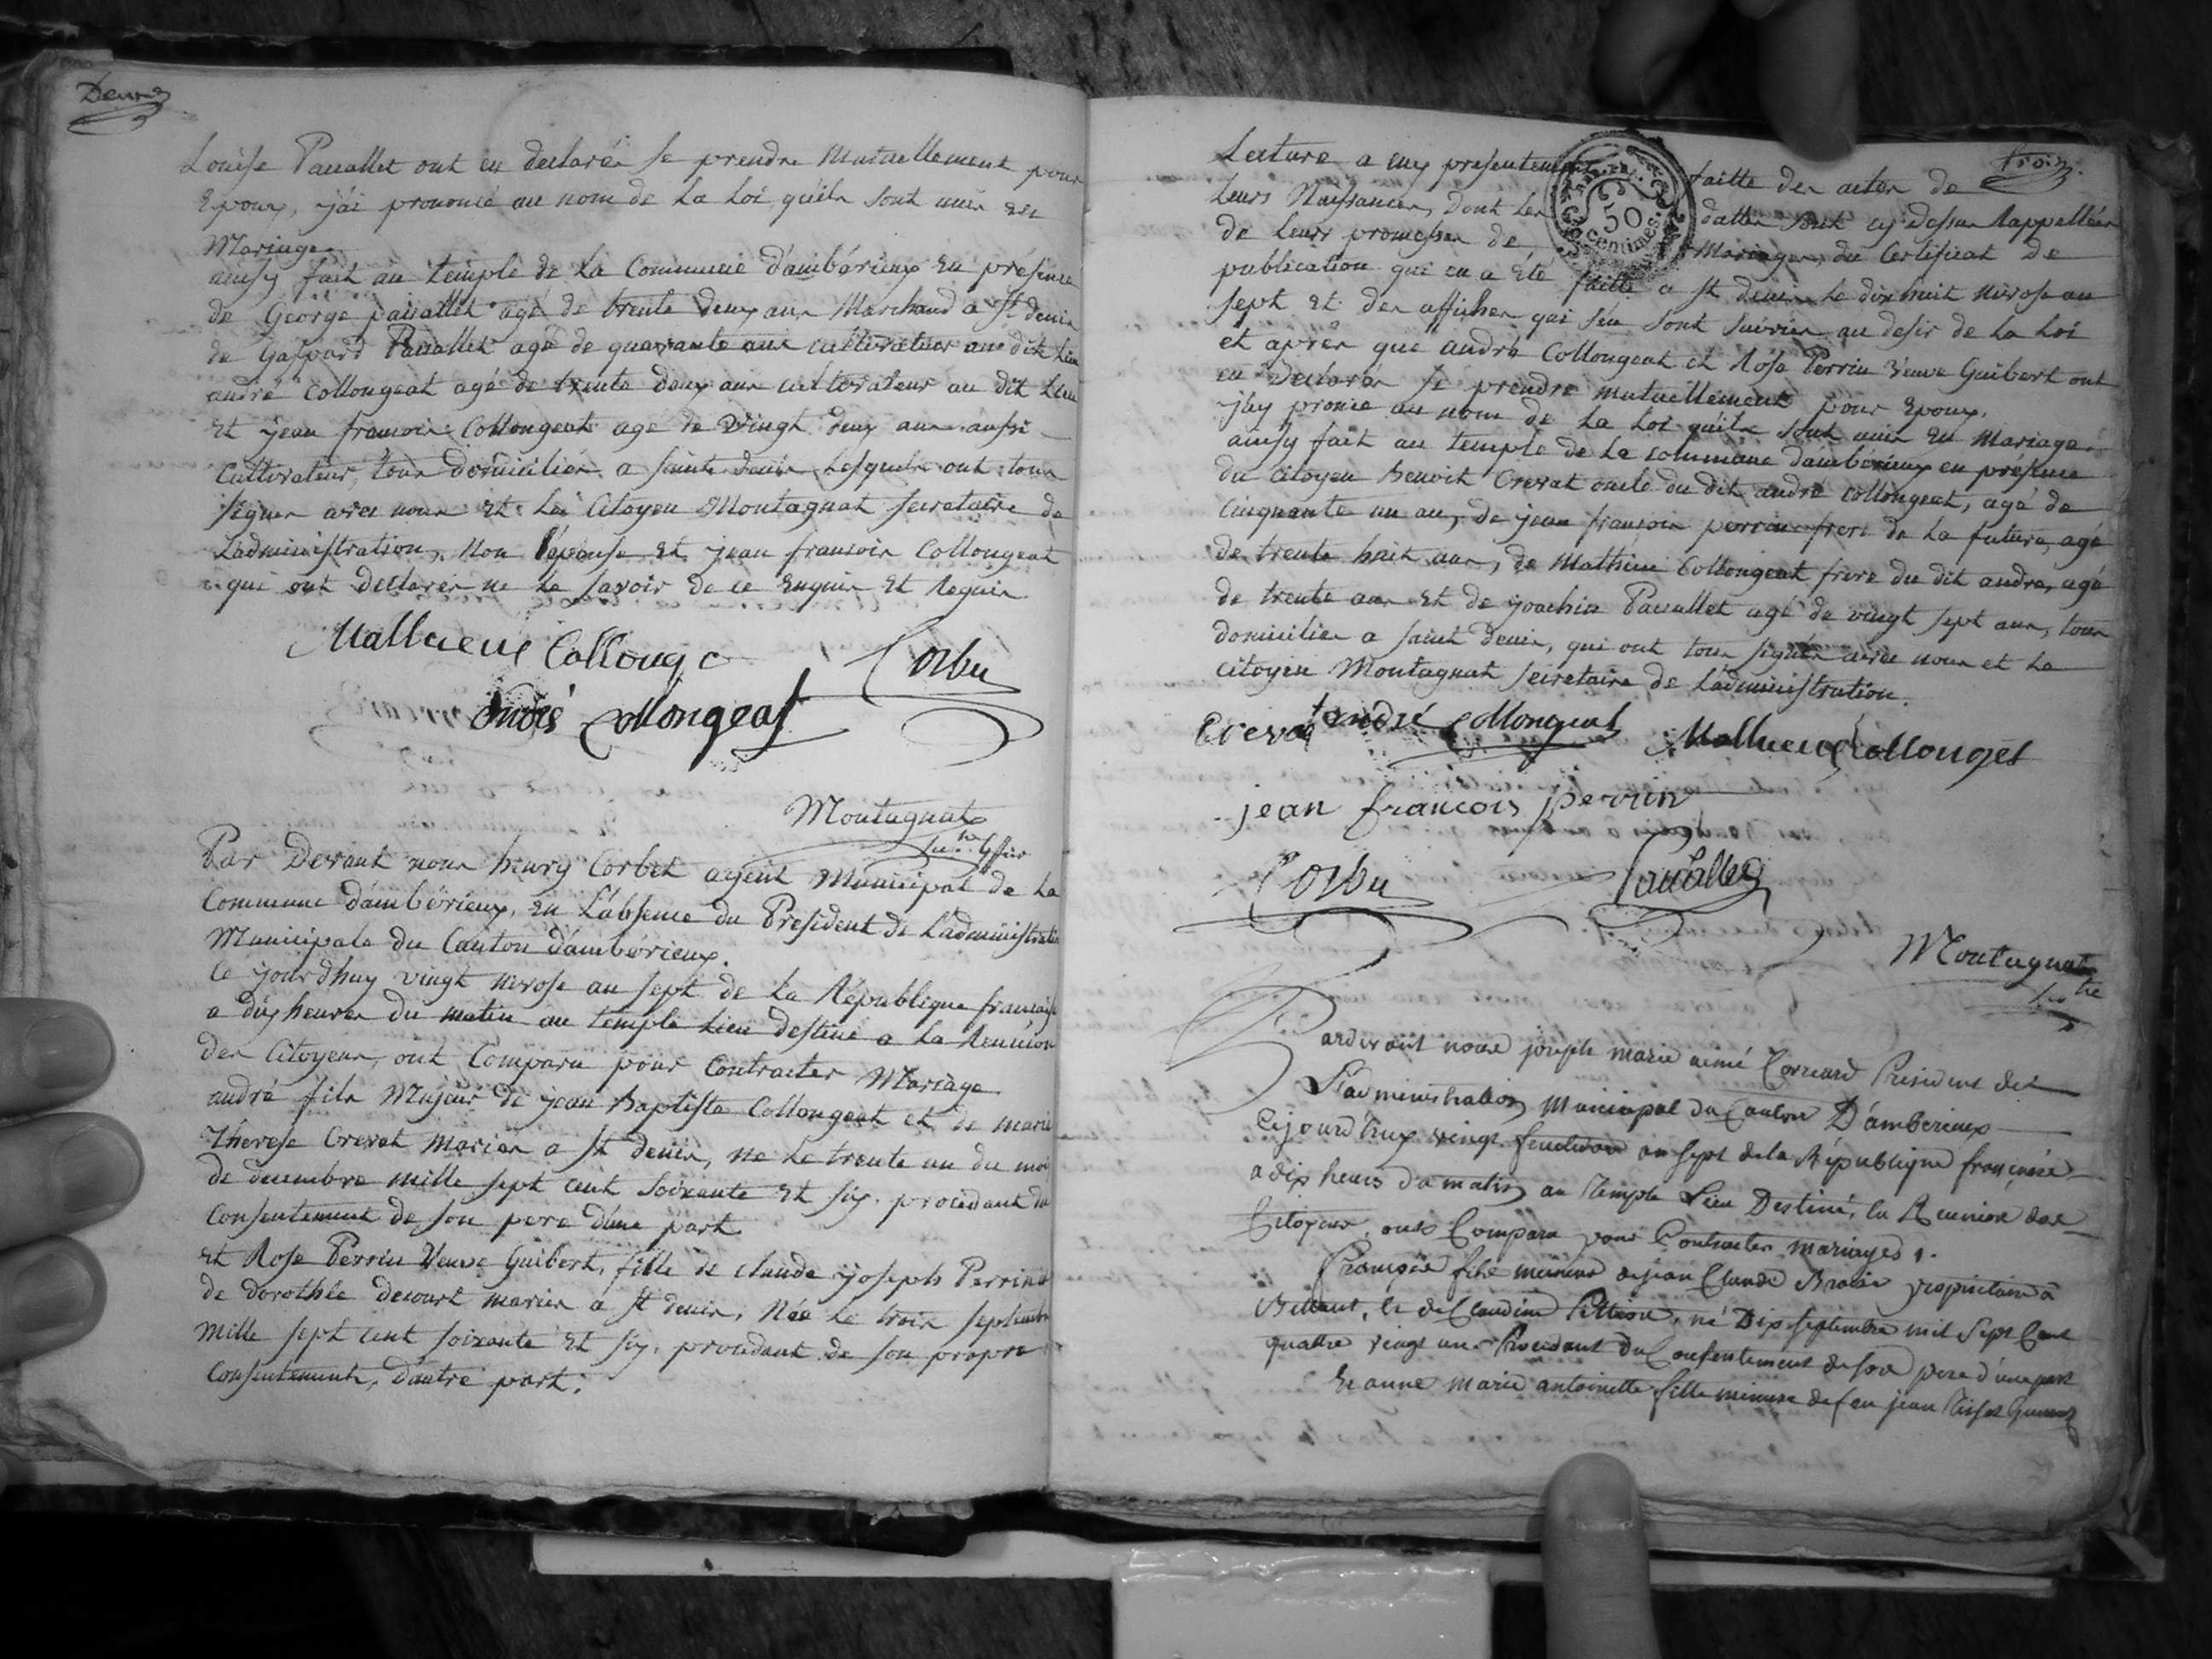 Deux
Louise Pauallet ont eu declarés se prendre Mutuellement pour
Epoux, j'ai prononcé au nom de la Loi qu'ils sont unis en
Mariage.
ainsy fait au temple de la Commune d'ambérieux en présence
de George pauallet agé de trente deux ans Marchand a St denis
de Gaspard Pauallet agé de quarante ans cultivateur au dit Lieu
andré Collongeat agé de trente deux ans cultivateur au dit Lieu
et jean francois Collongeat agé de Vingt deux ans aussi
Cultivateur, tous domiciliés a Saint denis Lesquels ont tous
signés avec nous et le Citoyen Montagnat secretaire de
L'administration, non l'épouse et jean francois Collongeat
qui ont declarés ne le savoir de ce Enquis et Requis
Mathieu Collonge
Corbet
André Collongeat
Montagnat
Par Devant nous henry Corbet agent Municipal de la
Commune d'ambérieux, en L'absence du President de L'administration
Municipale du Canton d'ambérieux.
Ce jourdhuy vingt nivose an sept de la République francaise
a dix heures du matin au temple Lieu destiné a la Reunion
des Citoyens, ont Comparu pour Contracter Mariage
andré fils Majeur de jean Baptiste Collongeat et de marie
Therese Crevat Mariés a St denis, né le trente un du mois
de decembre mille sept cent Soixante et six, procedant du
Consentement de son pere d'une part
et Rose Perrin Veuve Guibert, fille de claude joseph Perrin
de dorothée decourt mariés á St denis, Née le trois septembre
mille sept cent soixante et six, procedant de son propre
Consentement, d'autre part.
Trois
Lecture a eux presentement faitte des actes de
Leurs Naissances, dont les dattes sont cy dessus Rappellées
de leurs promesses de Mariages, du Certificat de
publication qui en a été faitte a St denis le dix huit nivose an
sept et des affiches qui s'en sont suivies au desir de la Loi
et après que andré Collongeat et Rose Perrin veuve Guibert ont
eu declarés se prendre mutuellement pour Epoux,
j'ay pronce au nom de la Loi qu'ils sont unis en Mariage.
ainsy fait au temple de la commune d'ambérieux en présence
du Citoyen Benoit Crevat oncle du dit andré collongeat, agé de
Cinquante un an, de jean francois perrin frere de la future, agé
de trente huit ans, de Mathieu Collongeat frere du dit andre, agé
de trente ans et de joachin Pauallet agé de vingt sept ans, tous
domiciliés a saint denis, qui ont tous signés avec nous et le
citoyen Montagnat secretaire de L'administration.
Crevat andré Collongeat Mathieu Collonges
jean francois perrin
Corbet Pauallet
Montagnat
50 centimes
Pardevant nous joseph marie aimé Corneard President de
L'administration Municipal du Canton D'amberieux
Cejourd'huy vingt an sept de la République française
a dix heures du matin au Temple Lieu Destiné, la Reunion des
Citoyens, ont Comparu pour Contracter mariages.
François fils mineur de jean Claude propriétaire à
et de Claudine né Dix septembre mil Sept Cent
quattre vingt un. Procedant du Consentement de son pere d'une part
Et anne marie antoinette fille mineure de feu jean